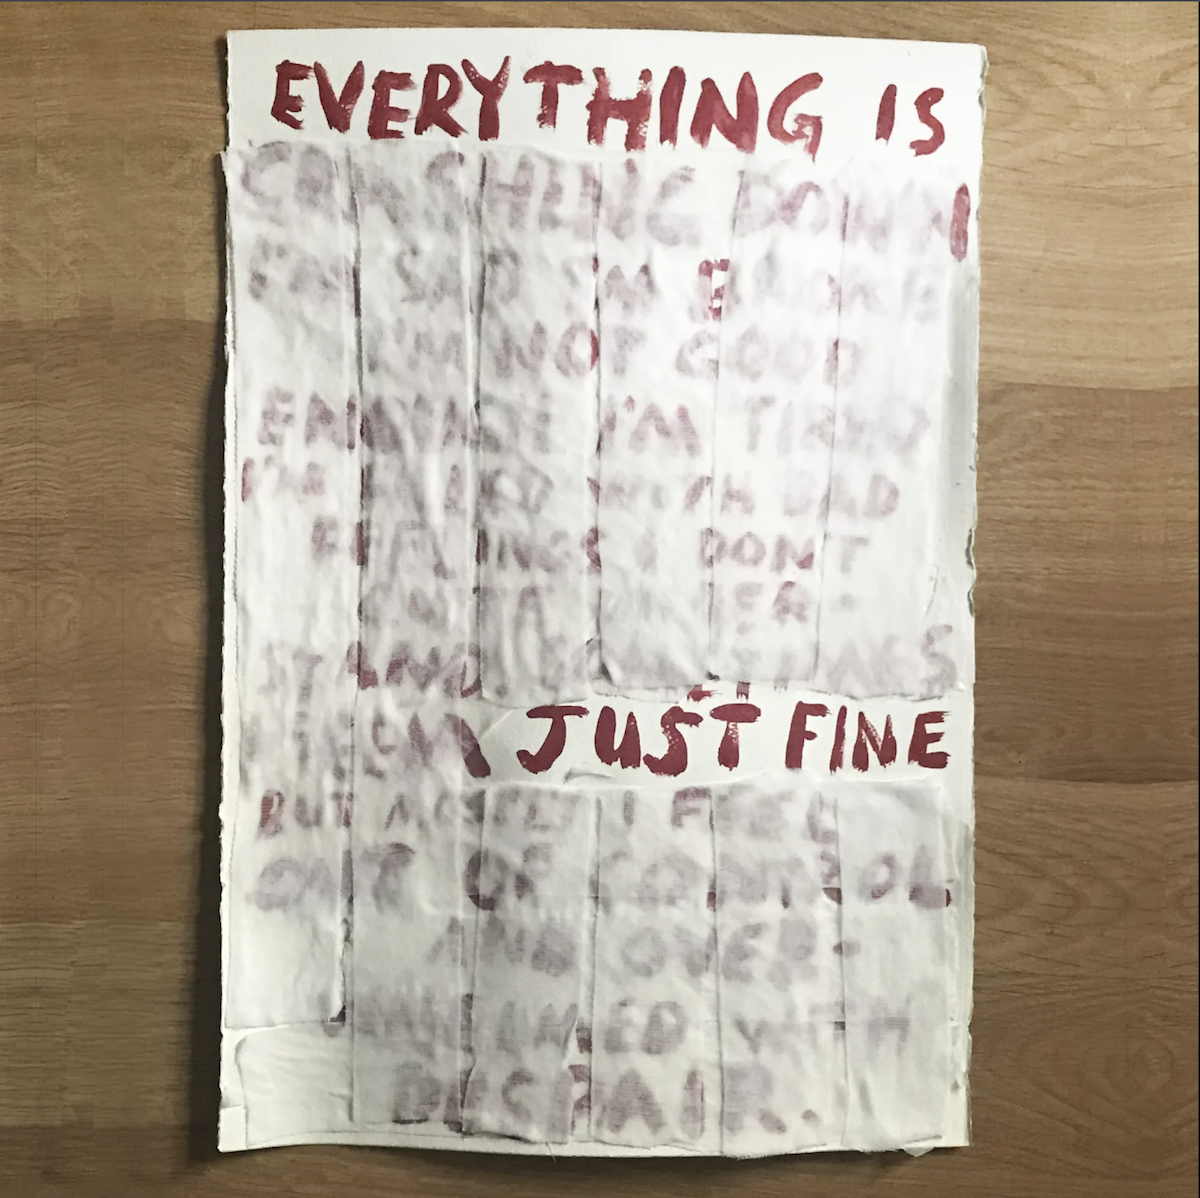 EVERYTHING IS
CRASHING DOWN
I'M SAD I'M BROKE
I'M NOT GOOD
ENOUGH I'M TIRED
I'M FILLED WITH BAD
FEELINGS I DON'T
QUITE UNDER-
STAND SOMETIMES
JUST FINE
BUT MOSTLY I FEEL
OUT OF CONTROL
AND OVER-
WHELMED WITH
DESPAIR.